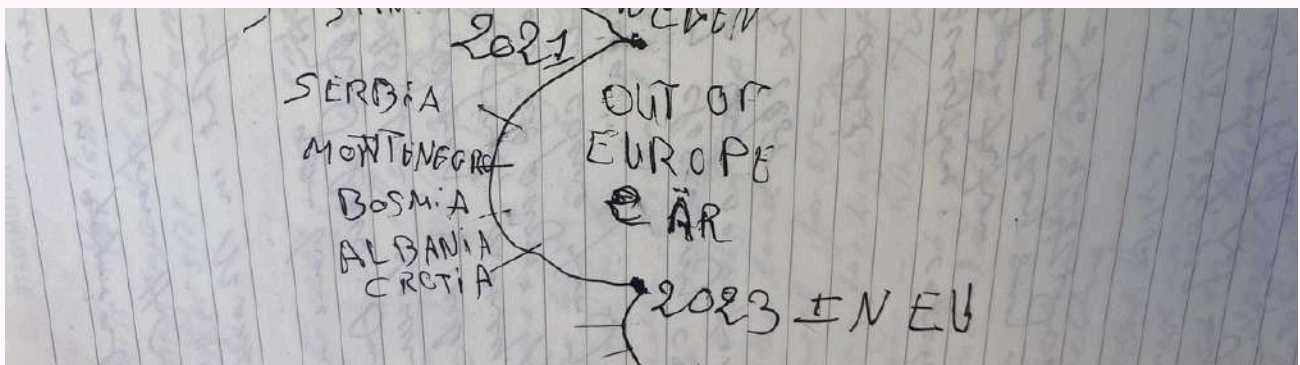 2021
SERBiA
MONTENEGRO
BOSMiA
ALBANiA
CRCTiA
OUT OF
EUROPE
ÄR
2023 IN EU